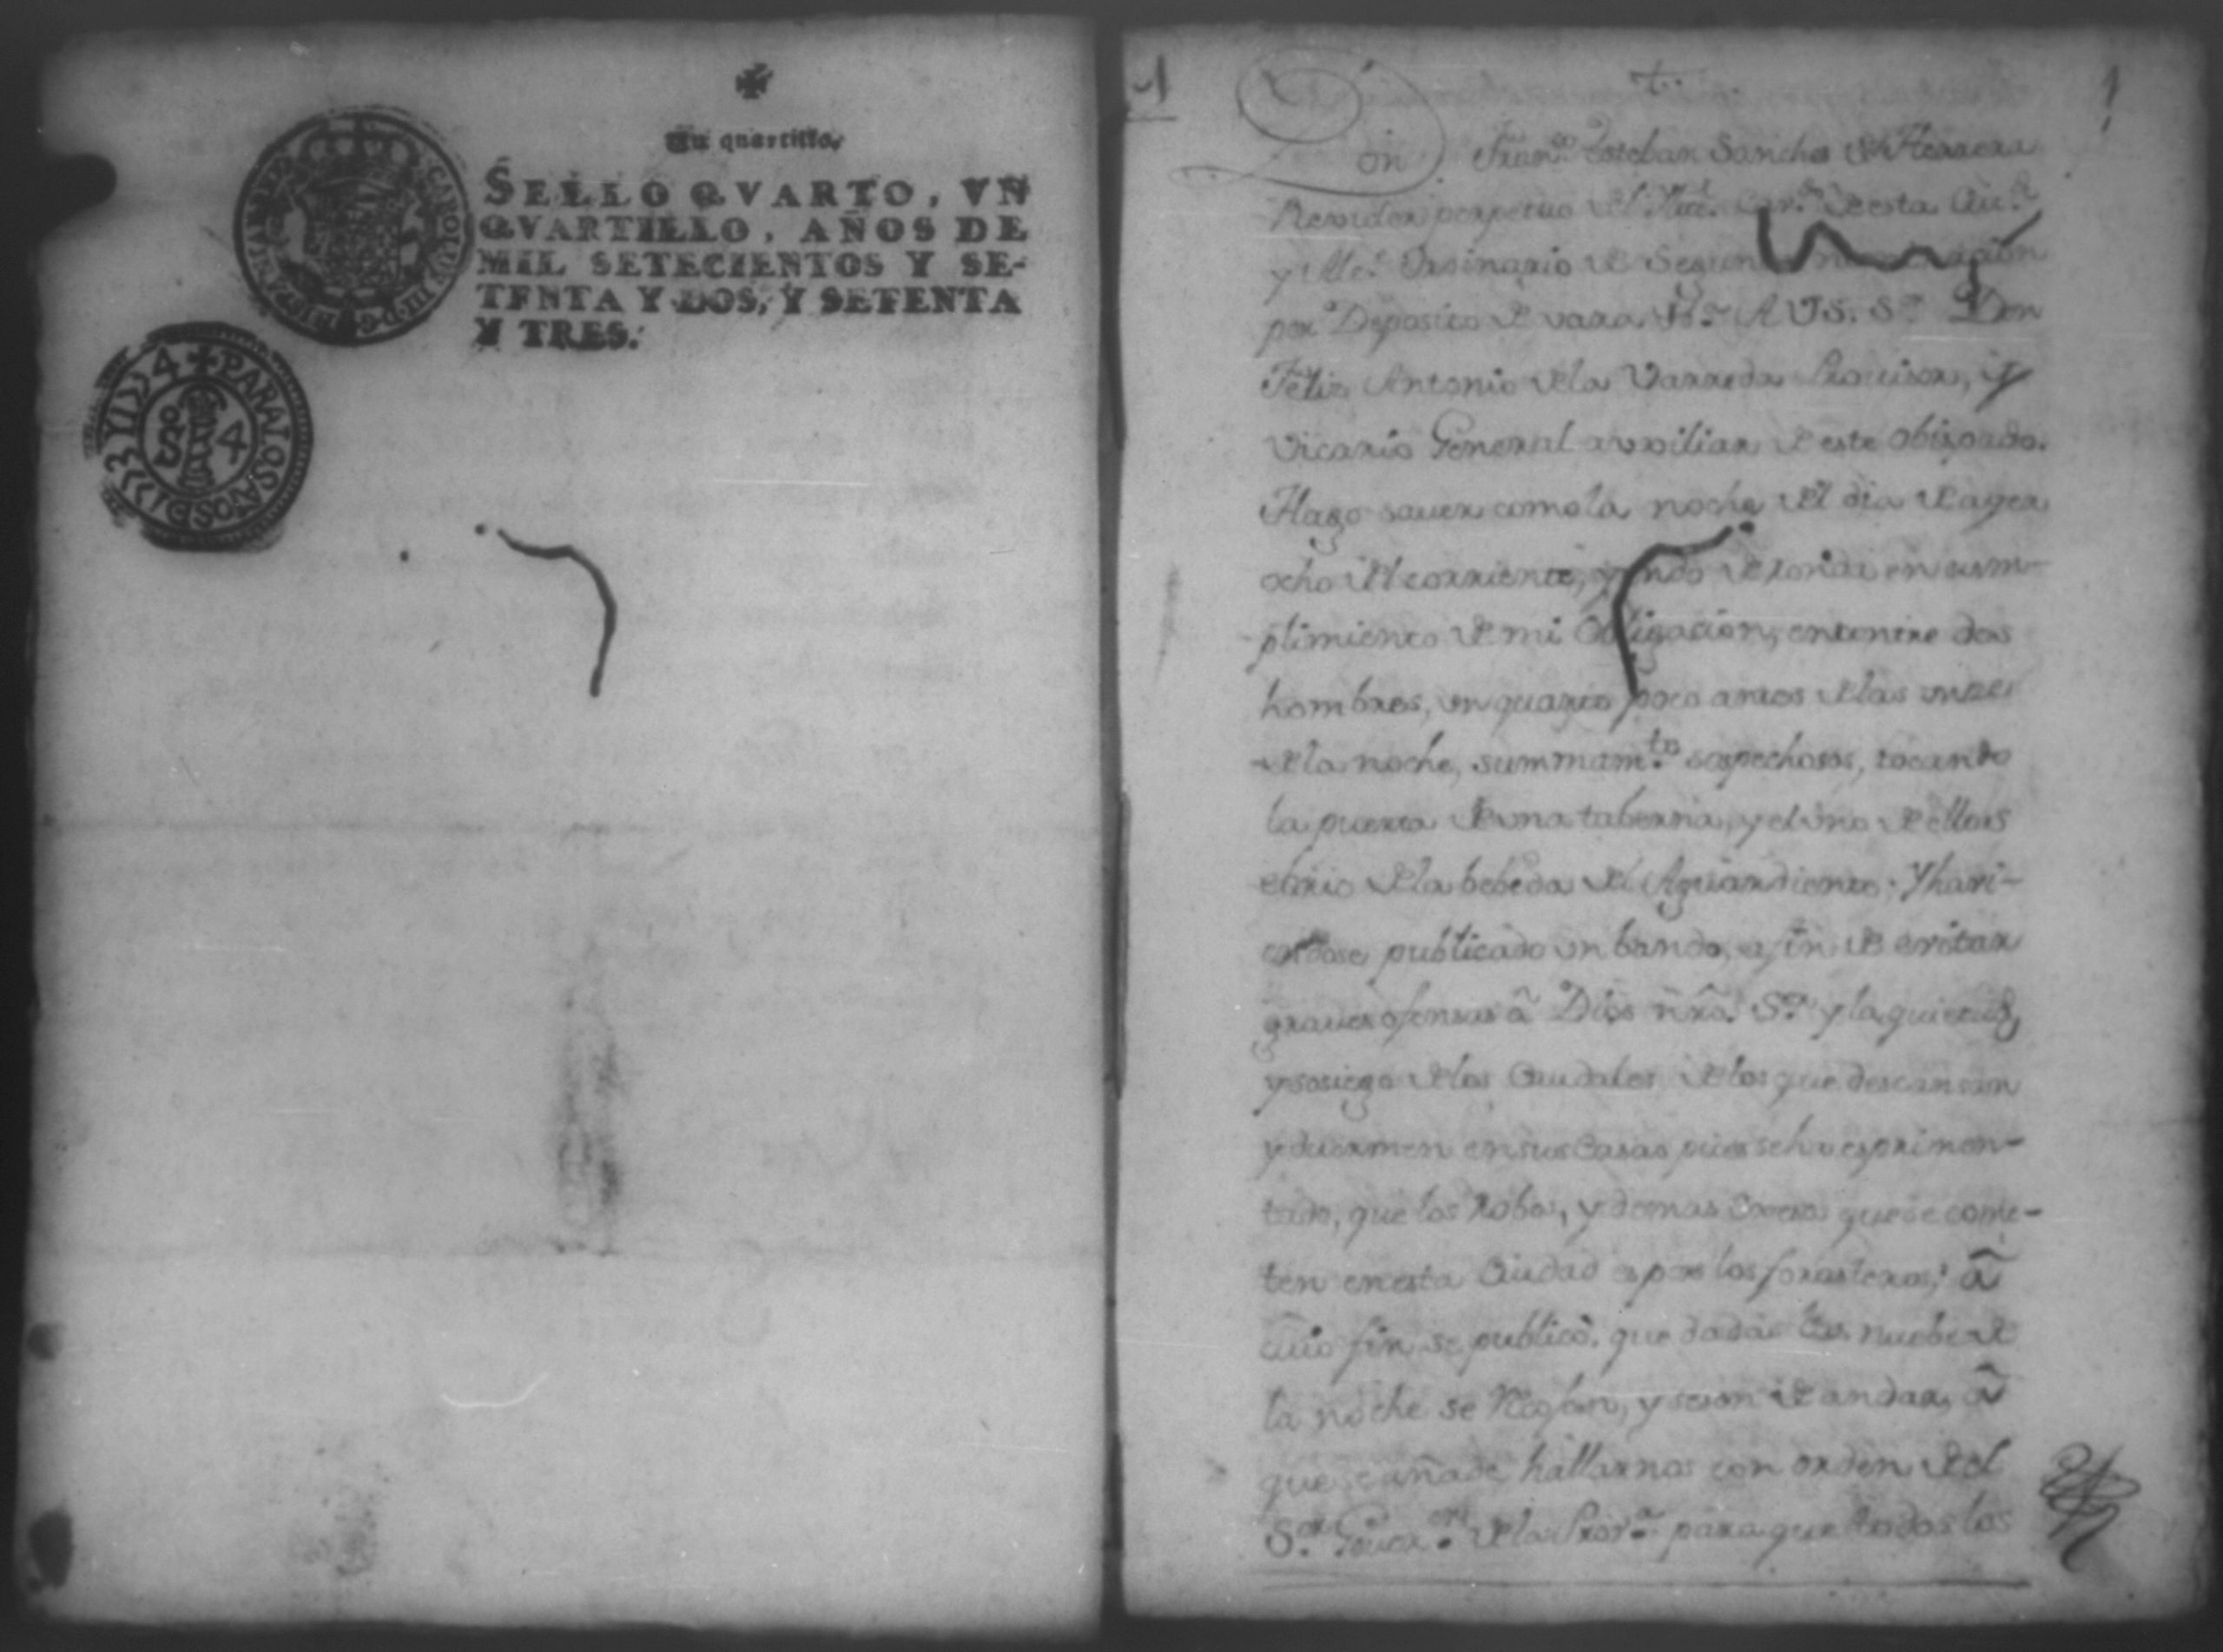 Un quartillo.
SELLO QVARTO, VN
QVARTILLO, AÑOS DE
MIL SETECIENTOS Y SE-
TENTA Y DOS, Y SETENTA
Y TRES.
CAROLUS III D G
PARA LOS AÑOS D 1774
1
1
Don Fran.co Esteban Sanchez de Herrera
Rexidor perpetuo del Ilue. Cav.do de esta Ciu.d
y Alc.e Ordinario de Segunda nominacion
por Deposito de vara &.a A VS. S.or Don
Felix Antonio de la Varreda Provisor, y
Vicario General auxiliar de este Obispado.
Hago saver como la noche del dia de ayer
ocho del corriente, yendo de ronda en cum-
plimiento de mi Obligacion, encontre dos
hombres, un quarto poco antes de las onze
de la noche, summam.te sospechosos, tocando
la puerta de una taberna, y el uno de ellos
ebrio de la bebeda del Aguardiente. Y havi-
endose publicado un bando, a fin de evitar
graues ofensas â Dios ñrô. S.or y la quietud,
y sosiego de los Caudales de los que descansan
y duermen en sus casas pues se ha esprimen-
tado, que los Robos, y demas que se come-
ten en esta Ciudad es por los forasteros; â
cuio fin se publicò. que dadas las nuebe de
la noche se Recojan, y sesen de andar, â
que se añade hallarnos con orden del
S.or Gouor.or de la Prov.a para que todos los